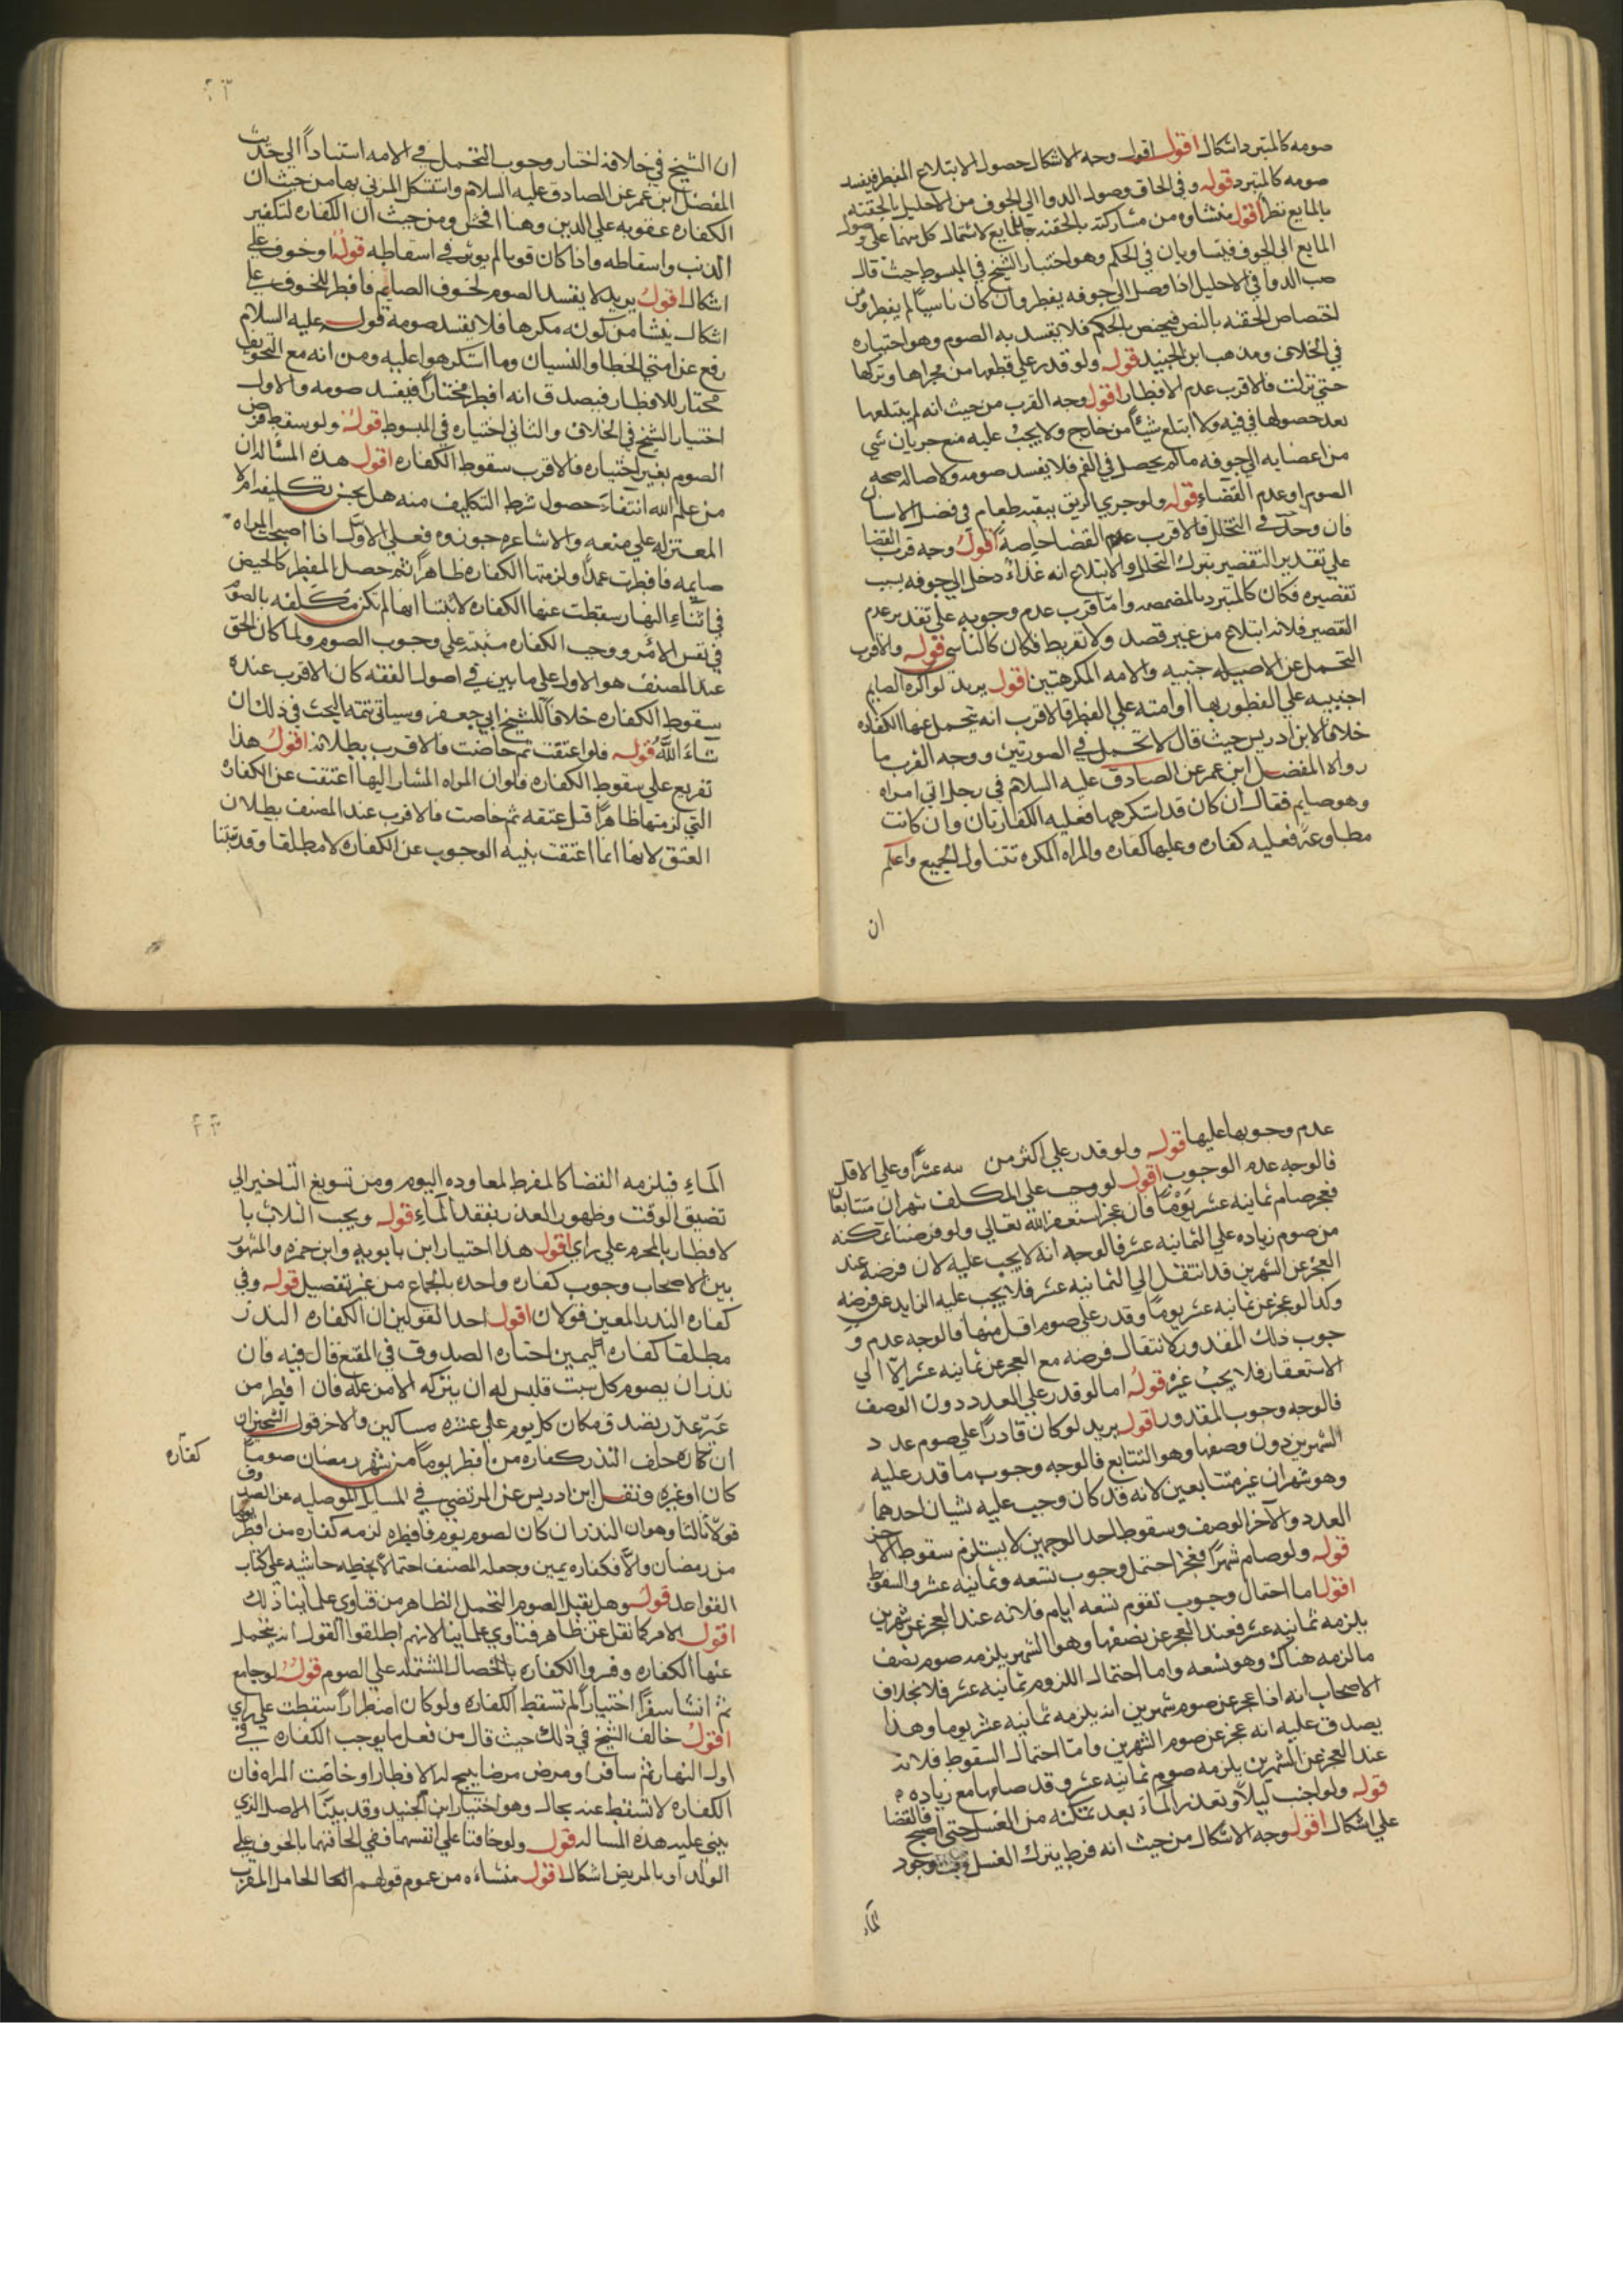 صومه كالمتبرد اشكال اقول اقول وجه الاشكال حصول الابتلاع المفطر فيفسد
صومه كالمتبرد قوله وفي الحاق وصول الدوا الي الجوف من الاحليل بالحقنه
بالمايع نظر اقول منشاوه من مشاركته بالحقنه بالمايع لاشتمال كل منهما علي وصول
المايع الي الجوف فيتساويان في الحكم وهو اختيار الشيخ في المبسوط حيث قال
صب الدوا في الاحليل اذا وصل الي جوفه يفطر وان كان ناسيا لم يفطر ومن
اختصاص الحقنه بالنص فيختص بالحكم فلا يفسد به الصوم وهو اختياره
في الخلاف ومذهب ابن الجنيد قوله ولو قدر علي قطعها من مجراها وتركها
حتي نزلت فالاقرب عدم الافطار اقول وجه القرب من حيث انه لم يبتلعها
بعد حصولها في فيه ولا ابتلع شيئا من خارج ولا يجب عليه منع جريان شي
من اعضايه الي جوفه مالم يحصل في الفم فلا يفسد صومه ولاصاله صحه
الصوم او عدم القضاء قوله ولو جري الريق ببقيه طعام في فضل الاسنان
فان وحد في التخلل فالاقرب عدم القضا خاصة اقول وجه قرب القضا
علي تقدير التقصير بترك التخلل والابتلاع انه غذاء دخل الي جوفه بسبب
تقصيره فكان كالمتبرد بالمضمضه واما قرب عدم وجوبه علي تقدير عدم
التقصير فلانه ابتلاع من غير قصد ولا تفريط فكان كالناسي قوله والاقرب
التحمل عن الاجنبيه والامه المكرهتين اقول يريد لو اكره الصايم
اجنبيه علي الفطور بها او امته علي الفطر فالاقرب انه يتحمل عنها الكفاره
خلافا لابن ادريس حيث قال لا تحمل في الصورتين ووجه القرب ما
رواه المفضل ابن عمر عن الصادق عليه السلام في رجل اتي امراه
وهو صايم فقال ان كان قد استكرهها فعليه الكفارتان وان كانت
مطاوعة فعليه كفاره وعليها كفاره والمراه المكره تتناول الجميع واعلم
ان
٢٣
ان الشيخ في خلافه اختار وجوب التحمل في الامه استنادا الي حديث
المفضل ابن عمر عن الصادق عليه السلام واستشكل المزني بها من حيث ان
الكفاره عقوبه علي الدين وهنا افحش ومن حيث ان الكفاره لتكفير
الذنب واسقاطه واذا كان قويا لم يوثر في اسقاطه قوله او خوف علي
اشكال اقول يريد لا يفسد الصوم لخوف الصايم فافطر للخوف علي
اشكال ينشا من كونه مكرها فلا يفسد صومه قوله عليه السلام
رفع عن امتي الخطا والنسيان وما استكرهوا عليه ومن انه مع التخويف
مختار للافطار فيصدق انه افطر مختارا فيفسد صومه والاول
اختيار الشيخ في الخلاف والثاني اختياره في المبسوط قوله ولو سقط فرض
الصوم بغير اختياره فالاقرب سقوط الكفاره اقول هذه المساله ان
من علم الله انتفاء حصول شرط التكليف منه هل يحسن تكليفه ام لا
المعتزله علي منعه والاشاعره جوزوه فعلي الاول اذا اصبحت المراه
صايمه فافطرت عمدا ولزمتها الكفاره ظاهرا ثم حصل المفطر كالحيض
في اثناء النهار سقطت عنها الكفاره لانتفا انها لم تكن مكلفه بالصوم
في نفس الامر ووجب الكفاره مبنيه علي وجوب الصوم ولما كان الحق
عند المصنف هو الاول علي ما بين في اصول الفقه كان الاقرب عنده
سقوط الكفاره خلافا للشيخ ابي جعفر وسياتي تتمه البحث في ذلك ان
شاء الله قوله فلو اعتقت ثم حاضت فالاقرب بطلانه اقول هذا
تفريع علي سقوط الكفاره فلو ان المراه المشار اليها اعتقت عن الكفاره
التي لزمتها ظاهرا قبل عتقه ثم حاضت فالاقرب عند المصنف بطلان
العتق لانها انما اعتقت بنيه الوجوب عن الكفاره لا مطلقا وقد بينا
عدم وجوبها عليها قوله ولو قدر علي اكثر من عشرا وعلي الاقل
فالوجه عدم الوجوب اقول لو وجب علي المكلف شهران متتابعان
فعجز صام ثمانيه عشر يوما فان عجز استغفر الله تعالي ولو فرضنا تمكنه
من صوم زياده علي الثمانيه عشر فالوجه انه لا يجب عليه لان فرضه عند
العجز عن الشهرين قد انتقل الي الثمانيه عشر فلا يجب عليه الزايد عن فرضه
وكذا لو عجز عن ثمانيه عشر يوما وقدر علي صوم اقل منها فالوجه عدم و
جوب ذلك المقدور لانتقال فرضه مع العجز عن ثمانيه عشر الا الي
الاستغفار فلا يجب غيره قوله اما لو قدر علي العدد دون الوصف
فالوجه وجوب المقدور اقول يريد لو كان قادرا علي صوم عدد
الشهرين دون وصفها وهو التتابع فالوجه وجوب ما قدر عليه
وهو شهران غير متتابعين لانه قد كان وجب عليه شيان احدهما
العدد والآخر الوصف وسقوط احد الوجهين لا يستلزم سقوط الاخر
قوله ولو صام شهرا فعجز احتمل وجوب تسعه وثمانيه عشر والسقوط
اقول اما احتمال وجوب تقوم تسعه ايام فلانه عند العجز عن شهرين
يلزمه ثمانيه عشر فعند العجز عن نصفها وهو الشهر يلزمه صوم نصف
ما لزمه هناك وهو تسعه واما احتمال اللزوم ثمانيه عشر فلا بخلاف
الاصحاب انه اذا عجز عن صوم شهرين انه يلزمه ثمانيه عشر يوما وهذا
يصدق عليه انه عجز عن صوم الشهرين واما احتمال السقوط فلانه
عند العجز عن الشهرين يلزمه صوم ثمانيه عشر وقد صامها مع زياده
قوله ولو اجنب ليلا وتعذر الماء بعد تمكنه من الغسل حتي اصبح فالقضا
علي اشكال اقول وجه الاشكال من حيث انه فرط بترك الغسل وقت وجود
الماء
٢٣
الماء فيلزمه القضا كالمفرط لمعاوده النوم ومن تسويغ التاخير الي
تضيق الوقت وظهور العذر بفقد الماء قوله ويجب الثلاث با
لافطار بالمحرم علي راي اقول هذا اختيار ابن بابويه وابن حمزه والمشهور
بين الاصحاب وجوب كفاره واحده بالجماع من غير تفصيل قوله وفي
كفاره النذر المعين قولان اقول احد القولين ان الكفاره النذر
مطلقا كفاره اليمين اختاره الصدوق في المقنع قال فيه فان
نذر ان يصوم كل سبت فليس له ان يتركه الا من عله فان افطر من
غير عذر تصدق مكان كل يوم علي عشره مساكين والاخر قول الشيخين
ان كفاره خلف النذر كفاره من افطر يوما من شهر رمضان صوما
كفاره
كان او غيره ونقل ابن ادريس عن المرتضي في المسايل الموصليه عن الصدوق
قولا ثالثا وهو ان النذر ان كان لصوم يوم فافطره لزمه كفاره من افطر يوما
من رمضان والا فكفاره يمين وجعله المصنف احتمالا بخطه حاشيه علي كتاب
القواعد قوله وهل يقبل الصوم التحمل الظاهر من فتاوي علماينا ذلك
اقول الامر كما نقل عن ظاهر فتاوي علماينا لانهم اطلقوا القول انه يتحمل
عنها الكفاره وفسروا الكفاره بالخصال المشتمله علي الصوم قوله لو جامع
ثم انشا سفرا اختيارا لم تسقط الكفاره ولو كان اضطرارا سقطت علي راي
اقول خالف الشيخ في ذلك حيث قال من فعل ما يوجب الكفاره في
اول النهار ثم سافر او مرض مرضا يبيح له الافطار او حاضت المراه فان
الكفاره لا تسقط عنه بحال وهو اختيار ابن الجنيد وقد بينا الاصل الذي
يبني عليه هذه المساله قوله ولو خافتا علي انفسهما ففي الحاقهما بالخوف علي
الولد او بالمريض اشكال اقول منشاءه من عموم قولهم الحامل المقرب